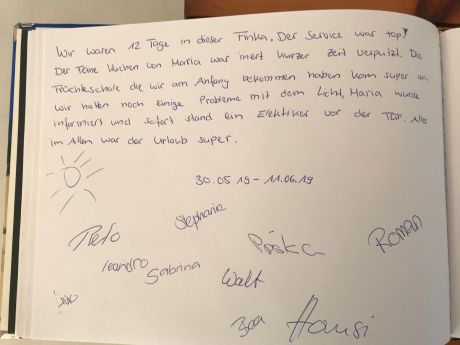 Wir waren 12 Tage in dieser Finka. Der Service war top!
Der Feine Kuchen von Maria war inert kurzer Zeit verputzt. Die
Früchteschale die wir am Anfang bekommen haben kam super an.
Wir hatten noch einige Probleme mit dem Licht, Maria wurde
informiert und sofort stand ein Elektiker vor der Tür. Alles
im Allem war der Urlaub super.
30.05.19 - 11.06.19
Stephanie
Reto
Piroska
Roman
Leandro
Sabrina
Walt
Hansi